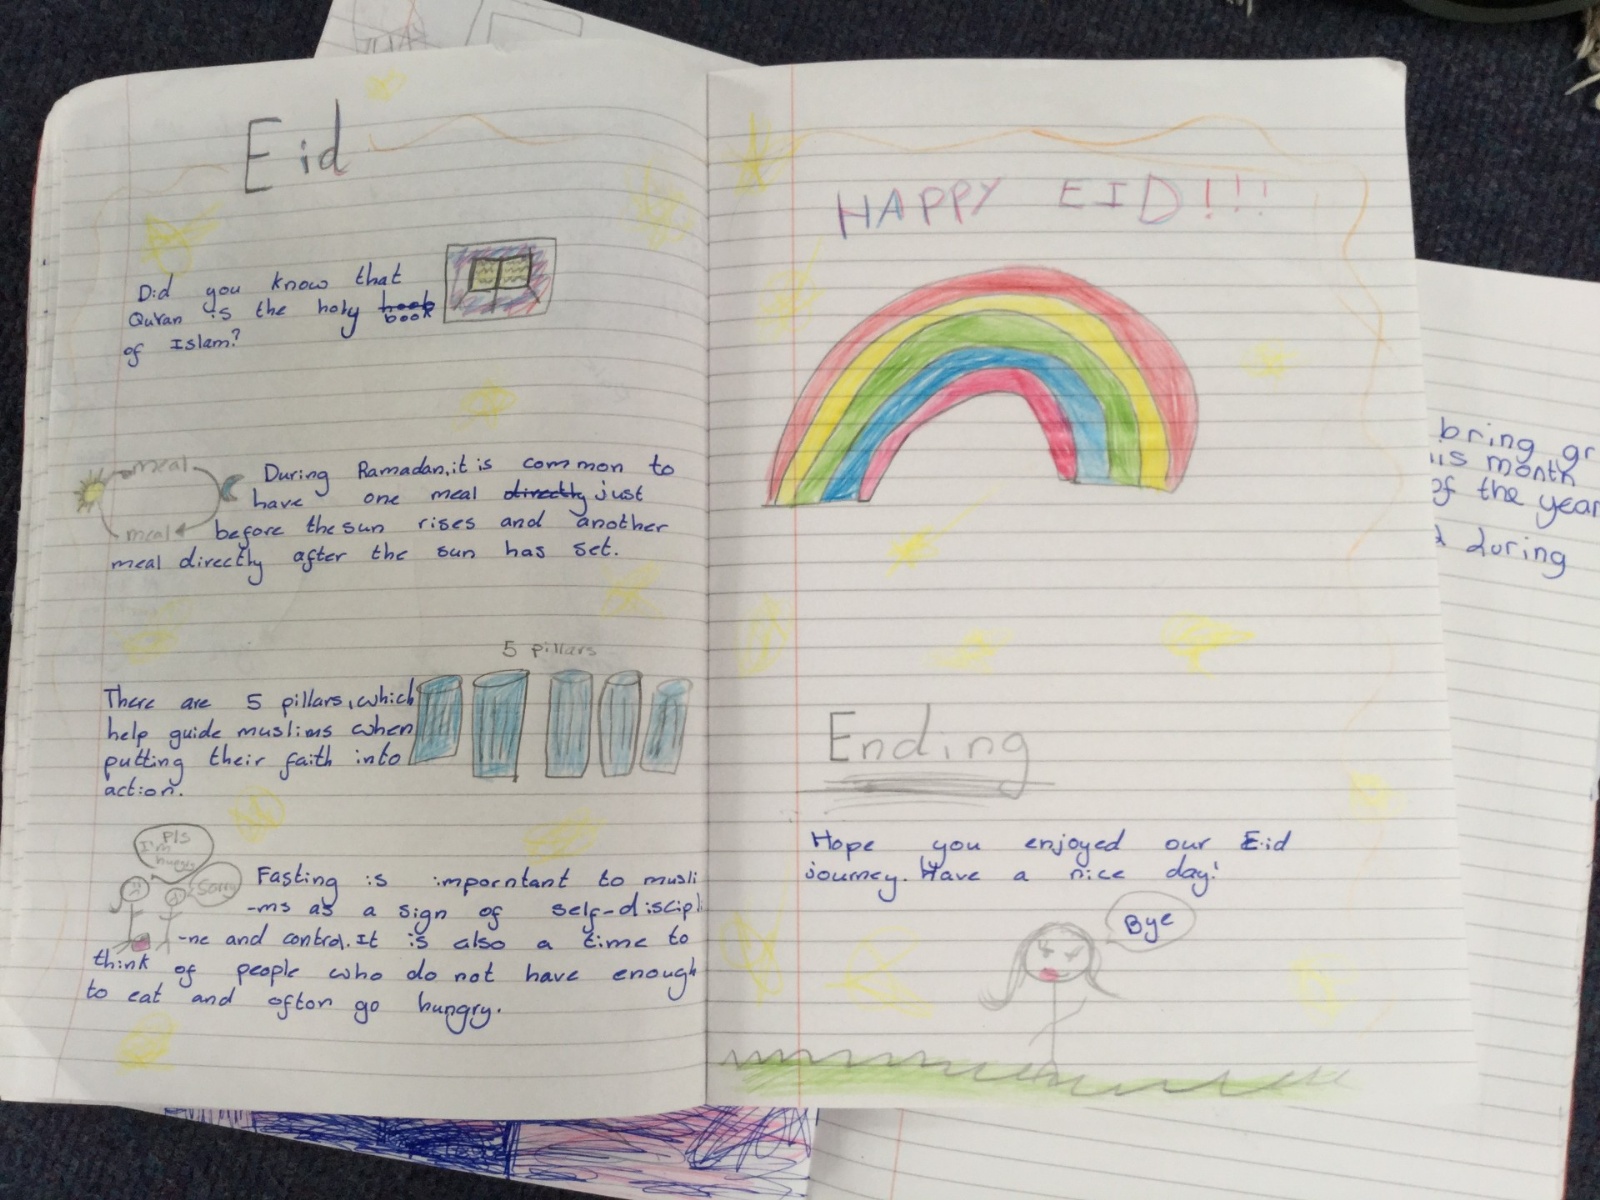 Eid
Did you know that
Quran is the holy book
book
of Islam?
meal
meal
During Ramadan, it is common to
have one meal directly just
before the sun rises and another
meal directly after the sun has set.
5 pillars
There are 5 pillars, which
help guide muslims when
putting their faith into
action.
Pls
I'm
hungry
Sorry
Fasting is imporntant to musli
-ms as a sign of self-discipli
-ne and control. It is also a time to
think of people who do not have enough
to eat and ofton go hungry.
HAPPY EID!!!
Ending
Hope you enjoyed our Eid
journey. Have a nice day!
Bye
bring gr
his month
of the year
during